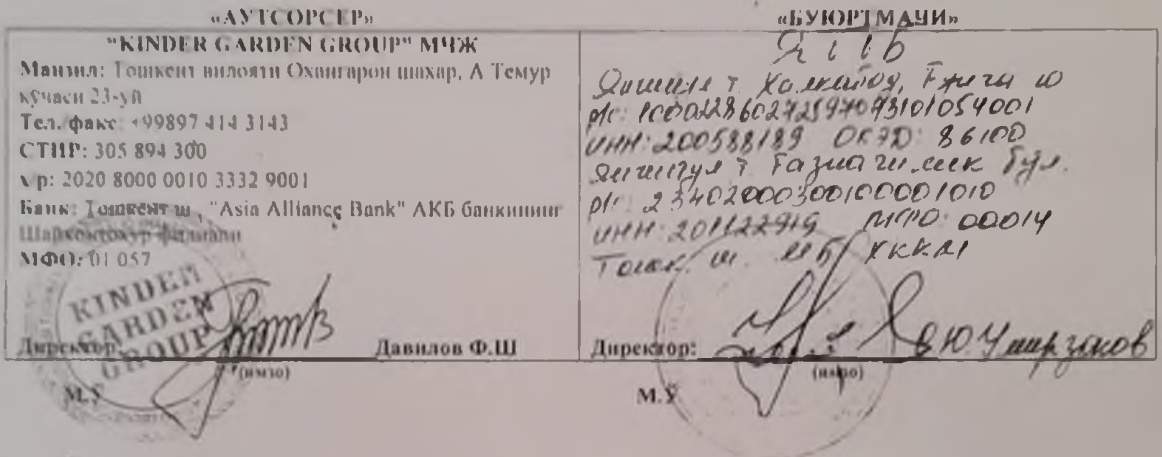 «АУТСОРСЕР»
"KINDER GARDEN GROUP" МЧЖ
Манзил: Тошкент вилояти Охангарон шахар, А Темур
кўчаси 23-уй
Тел./факс: +99897 414 3143
СТИР: 305 894 300
х/р: 2020 8000 0010 3332 9001
Банк: Тошкент ш., "Asia Alliance Bank" АКБ банкининг
Шайхонтохур филиали
МФО: 01 057
KINDER GARDEN GROUP
Директор: Давилов Ф.Ш
(имзо)
М.Ў
«БУЮРТМАЧИ»
р/с: 100022860272597073101054001
ИНН: 200588189 ОКЭД: 86100
р/с: 23402000300100001010
ИНН: 201122919 МФО: 00014
Тошк. ш. МБ ХККМ
Директор: Умирзоков
(имзо)
М.Ў